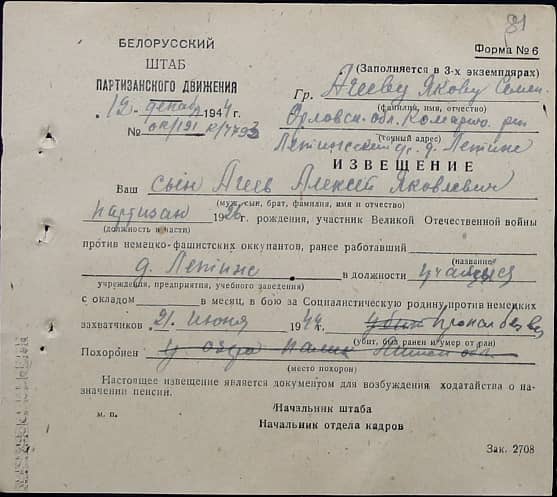 81
БЕЛОРУССКИЙ
ШТАБ
ПАРТИЗАНСКОГО ДВИЖЕНИЯ
Форма № 6
(Заполняется в 3-х экземплярах)
Гр. Агееву Якову Семен.
(фамилия, имя, отчество)
"12" декабр 1944 г.
Орловск. обл. Комарич. р-н
№
(точный адрес)
д. Летинс
ИЗВЕЩЕНИЕ
Ваш сын Агеев Алексей Яковлевич
(муж, сын, брат, фамилия, имя и отчество)
партизан 1926 г. рождения, участник Великой Отечественной войны
(должность и части)
против немецко-фашистских оккупантов, ранее работавший
(название
д. Летинс в должности учащийся
учреждения, предприятия, учебного заведения)
с окладом в месяц, в бою за Социалистическую родину против немецких
захватчиков 21 июня 1944 г. убит пропал без вес
(убит, был ранен и умер от ран)
Похоронен у озера Палик обл
(место похорон)
Настоящее извещение является документом для возбуждения ходатайства о на-
значении пенсии.
м. п.
Начальник штаба
Начальник отдела кадров
Зак. 2708